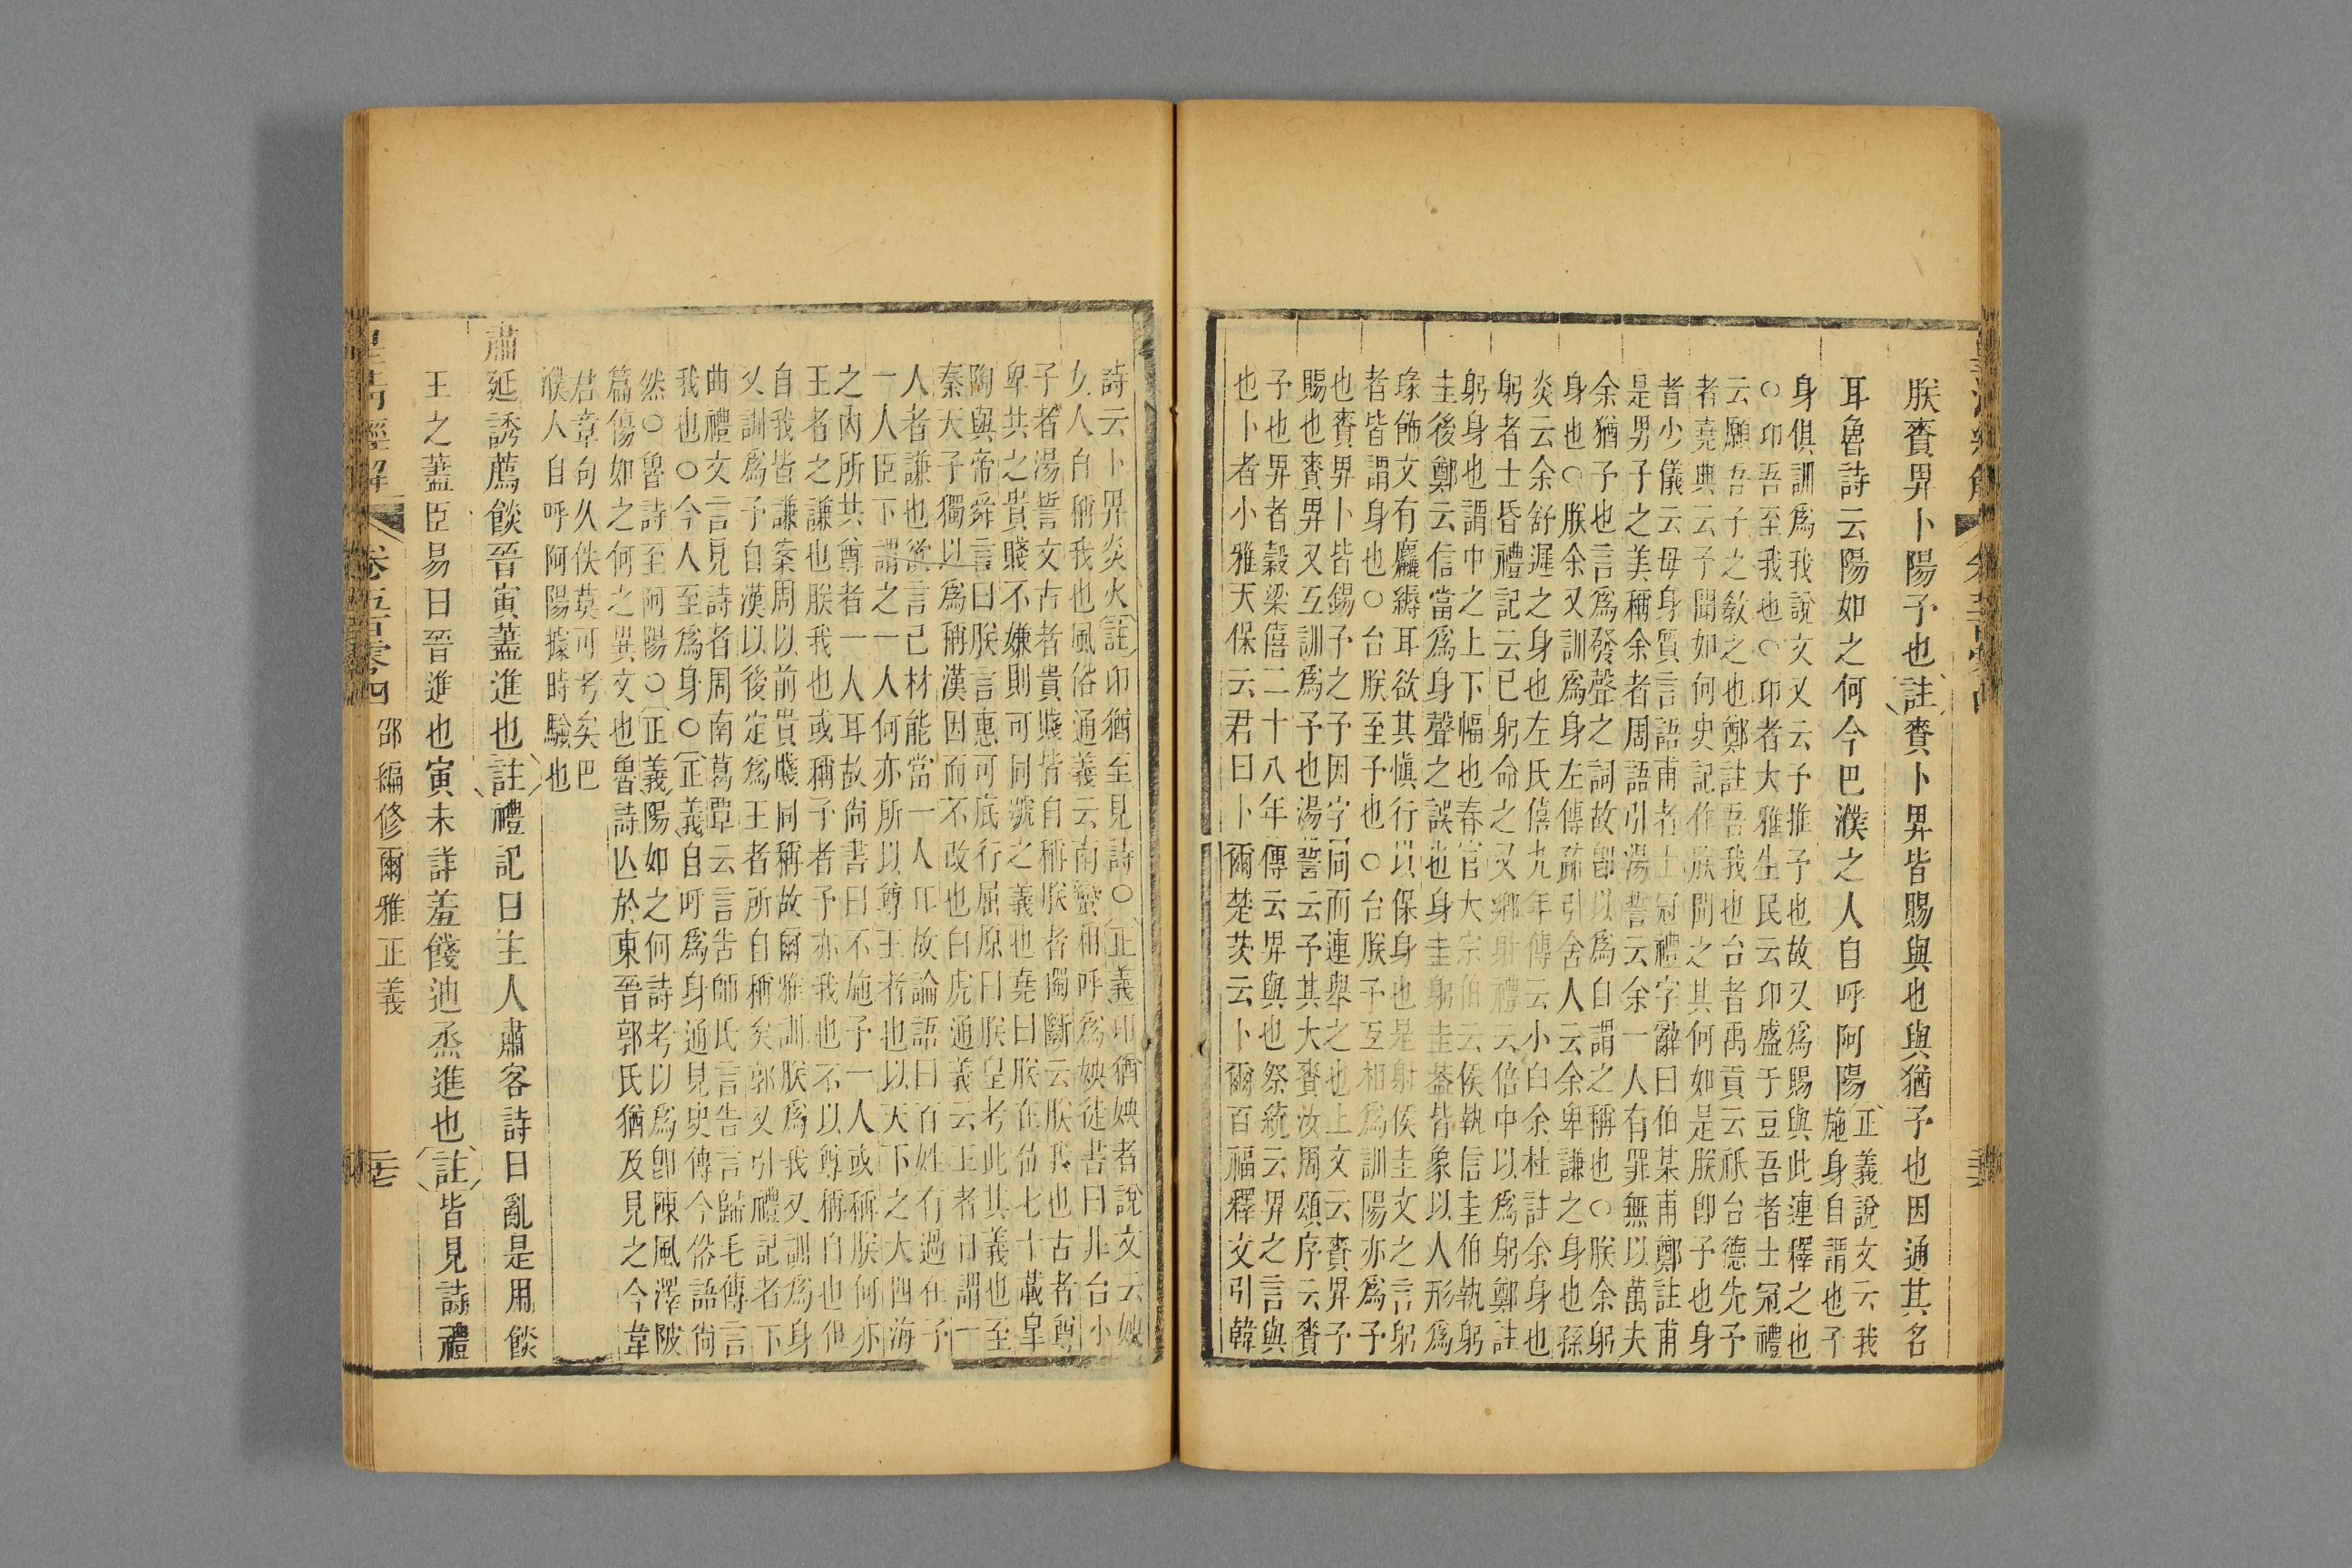 朕賚畀卜陽予也〔註〕賚卜畀皆賜與也與猶予也因通其名
耳魯詩云陽如之何今巴濮之人自呼阿陽
〔正義〕說文云我
施身自謂也予
身俱訓爲我說文又云予推予也故又爲賜與此連釋之也
○卬吾至我也○卬者大雅生民云卬盛于豆吾者士冠禮
云願吾子之敎之也鄭註吾我也台者禹貢云祇台德先予
者堯典云予聞如何史記作朕聞之其何如是朕卽予也身
者少儀云毋身質言語甫者士冠禮字辭曰伯某甫鄭註甫
是男子之美稱余者周語引湯誓云余一人有罪無以萬夫
余猶予也言爲發聲之詞故卽以爲自謂之稱也○朕余躬
身也○朕余又訓爲身左傳疏引舍人云余卑謙之身也孫
炎云余舒遲之身也左氏僖九年傳云小白余杜註余身也
躬者士昏禮記云已躬命之又鄉射禮云倍中以爲躬鄭註
躬身也謂中之上下幅也春官大宗伯云侯執信圭伯執躬
圭後鄭云信當爲身聲之誤也身圭躬圭葢皆象以人形爲
瑑飾文有麤縟耳欲其愼行以保身也是射侯圭文之言躬
者皆謂身也○台朕至予也○台朕予互相爲訓陽亦爲予
也賚畀卜皆錫予之予因字同而連舉之也上文云賚畀予
賜也賚畀又互訓爲予也湯誓云予其大賚汝周頌序云賚
予也畀者穀梁僖二十八年傳云畀與也祭統云畀之言與
也卜者小雅天保云君曰卜爾楚茨云卜爾百福釋文引韓
詩云卜畀炎火〔註〕卬猶至見詩○〔正義〕卬猶姎者說文云姎
女人自稱我也風俗通義云南蠻相呼爲姎徒書曰非台小
子者湯誓文古者貴賤皆自稱朕者獨斷云朕我也古者尊
卑共之貴賤不嫌則可同號之義也堯曰朕在位七十載皐
陶與帝舜言曰朕言惠可底行屈原曰朕皇考此其義也至
秦天子獨以爲稱漢因而不改也白虎通義云王者自謂一
人者謙也欲言已材能當一人耳故論語曰百姓有過在予
一人臣下謂之一人何亦所以尊王者也以天下之大四海
之內所共尊者一人耳故尚書曰不施予一人或稱朕何亦
王者之謙也朕我也或稱予者予亦我也不以尊稱自也但
自我皆謙案周以前貴賤同稱故爾雅訓朕爲我又訓爲身
又訓爲予自漢以後定爲王者所自稱矣郭又引禮記者下
曲禮文言見詩者周南葛覃云言告師氏言告言歸毛傳言
我也○今人至爲身○〔正義〕自呼爲身通見史傳今俗語尚
然○魯詩至阿陽○〔正義〕陽如之何詩考以爲卽陳風澤陂
篇傷如之何之異文也魯詩亾於東晉郭氏猶及見之今韋
君章句久佚莫可考矣巴
濮人自呼阿陽據時驗也
肅延誘薦餤晉寅藎進也〔註〕禮記曰主人肅客詩曰亂是用餤
王之藎臣易曰晉進也寅未詳羞餞迪烝進也〔註〕皆見詩禮
皇淸經解 卷五百零四 邵編修爾雅正義